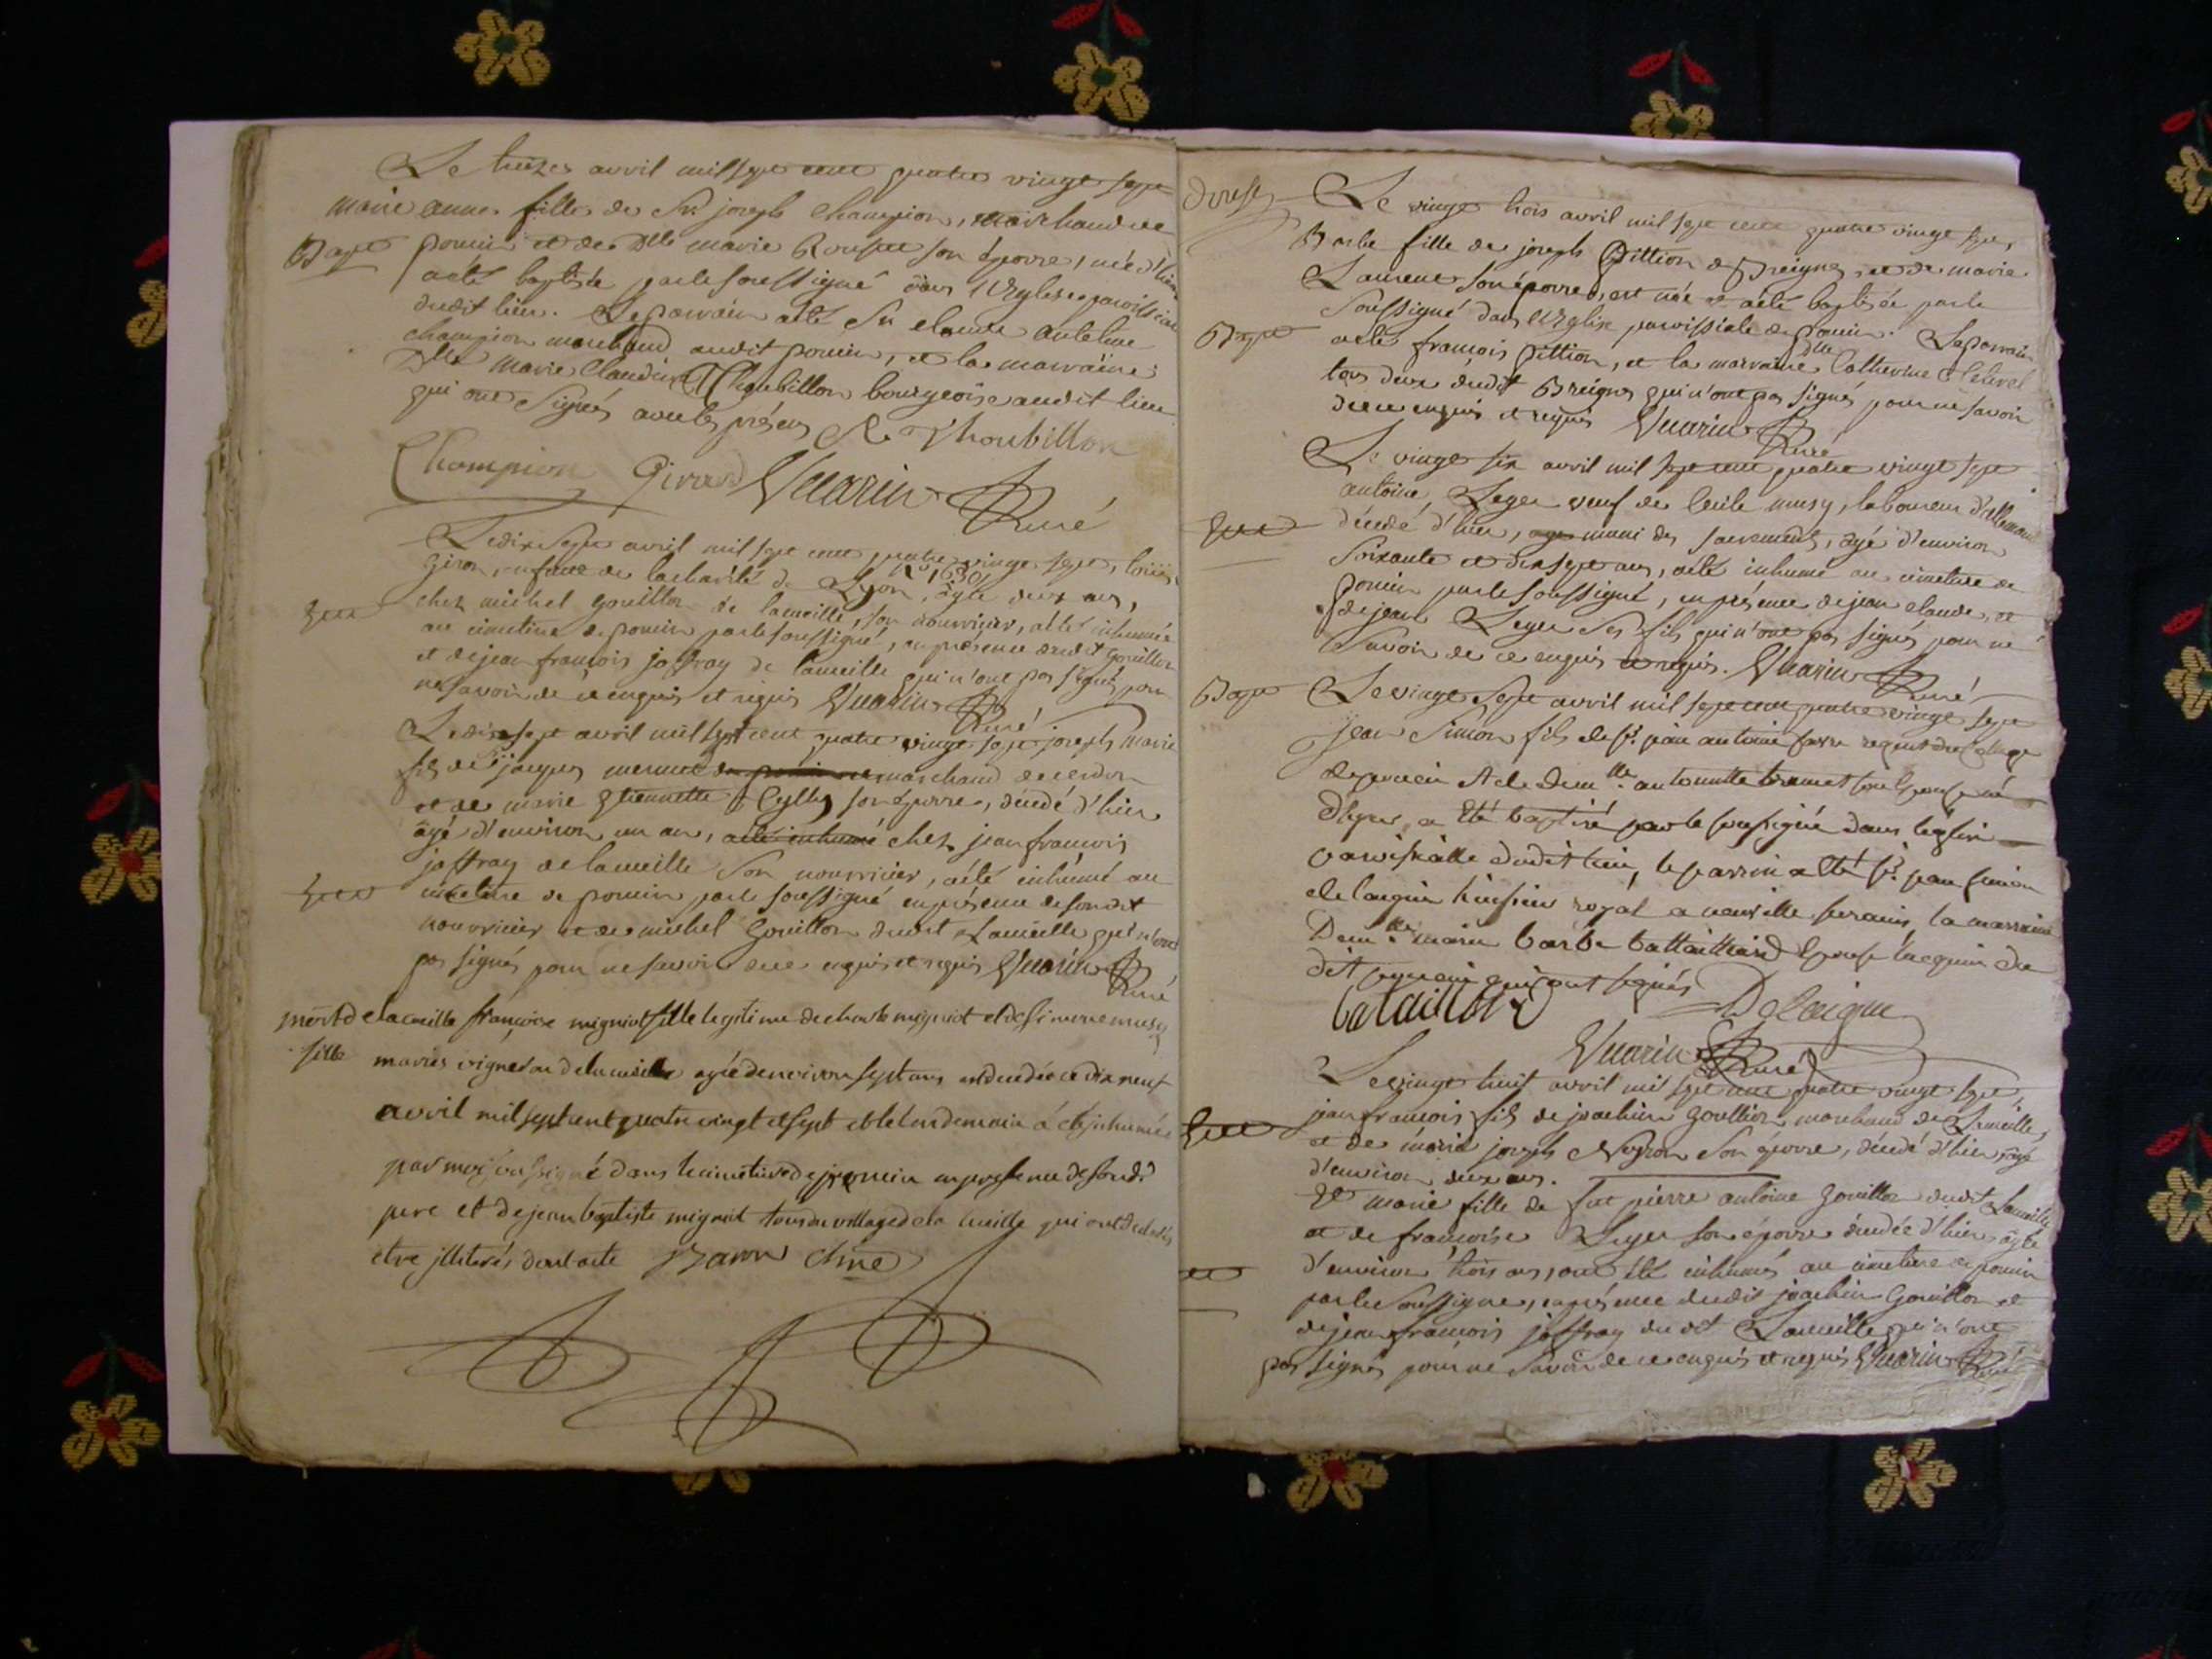 Le treize avril mil sept cent quatre vingt sept
marie anne fille de Sr joseph Champion, marchand de
Bapt poncin et de Dlle marie son épouse, née d'hier
a été baptisée par le soussigné dans l'Eglise paroissiale
dudit lieu. Le parrain a été Sr claude antelme
champion marchand audit poncin, et la marraine
Dlle marie Claudine Thoubillon bourgeoise audit lieu
qui ont signés avec les présens Thoubillon
Champion Girard Vuarin Curé
Le dix sept avril mil sept cent quatre vingt sept, louis
giron, enfant de la charité de Lyon, n° 1630, agé deux ans,
Sep chez michel gouillon de lameille, son nourricier, a été inhumé
au cimetiere de poncin par le soussigné, en présence dudit gouillon
et de jean françois joffray de lameille qui n'ont pas signés pour
ne savoir de ce enquis et requis Vuarin Curé
Le dix sept avril mil sept cent quatre vingt sept joseph marie
fils de jacques mermet marchand de cerdon
et de marie Etiennette son épouse, décédé d'hier
âgé d'environ un an, a été inhumé chez jean françois
joffray de lameille son nourricier, a été inhumé au
Sep cimetiere de poncin par le soussigné en présence de son dit
nourricier et de michel gouillon dudit Lameille qui n'ont
pas signés pour ne savoir de ce enquis et requis Vuarin Curé
mort de la cueille françoise migniot fille legitime de charle migniot et de simonne musy
fille mariés vigneron de la cueille agée denviron sept ans est decedée ce dix neuf
avril mil sept cent quatre vingt et sept et le lendemain a été inhumée
par moy soussigné dans le cimetiere de poncin en presence de sond.
pere et de jean baptiste migniot tous du village de la cueille qui ont declarés
etre illiterés dont acte
Le vingt trois avril mil sept cent quatre vingt sept,
Barbe fille de joseph Pittion de Breignes, et de marie
Laurent son épouse, est née et a été baptisée par le
soussigné dans l'Eglise paroissiale de poncin. Le parrain
Bapt a été françois Pittion, et la marraine Dlle Catherine
tous deux dudit Breignes qui n'ont pas signés pour ne savoir
de ce enquis et requis Vuarin Curé
Le vingt six avril mil sept cent quatre vingt sept
antoine Leger veuf de Cécile musy, laboureur
Sep décédé d'hier, muni des sacrements, agé d'environ
soixante et dix sept ans, a été inhumé au cimetiere de
poncin par le soussigné, en présence de jean claude, et
de jean Leger ses fils qui n'ont pas signés pour ne
savoir de ce enquis et requis. Vuarin Curé
Bapt Le vingt sept avril mil sept cent quatre vingt sept
jean Simon fils de Sr. jean antoine favre regent du College
de poncin et de demlle. antoinette son epouse né
d'hyer, a été baptisé par le soussigné dans leglise
paroissialle dudit lieu, le parrin a été Sr. jean simon
delaigue huissier royal a neuville sur ains, la marraine
Demlle. marie barbe battaillard
dit poncin qui ont signés
bataillard Delaigue
Vuarin Curé
Le vingt huit avril mil sept cent quatre vingt sept,
jean françois fils de joachim gouillon marchand de Lameille,
Sep et de marie joseph Neyron son épouse, décédé d'hier, agé
d'environ deux ans.
Et marie fille de fut pierre antoine gouillon dudit Lameille
et de françoise Leger son épouse décédée d'hier, agée
d'environ trois ans, ont été inhumés au cimetiere de poncin
par le soussigné, en présence dudit joachim Gouillon et
de jean françois joffray du dit Lameille qui n'ont
pas signés pour ne savoir de ce enquis et requis Vuarin Curé